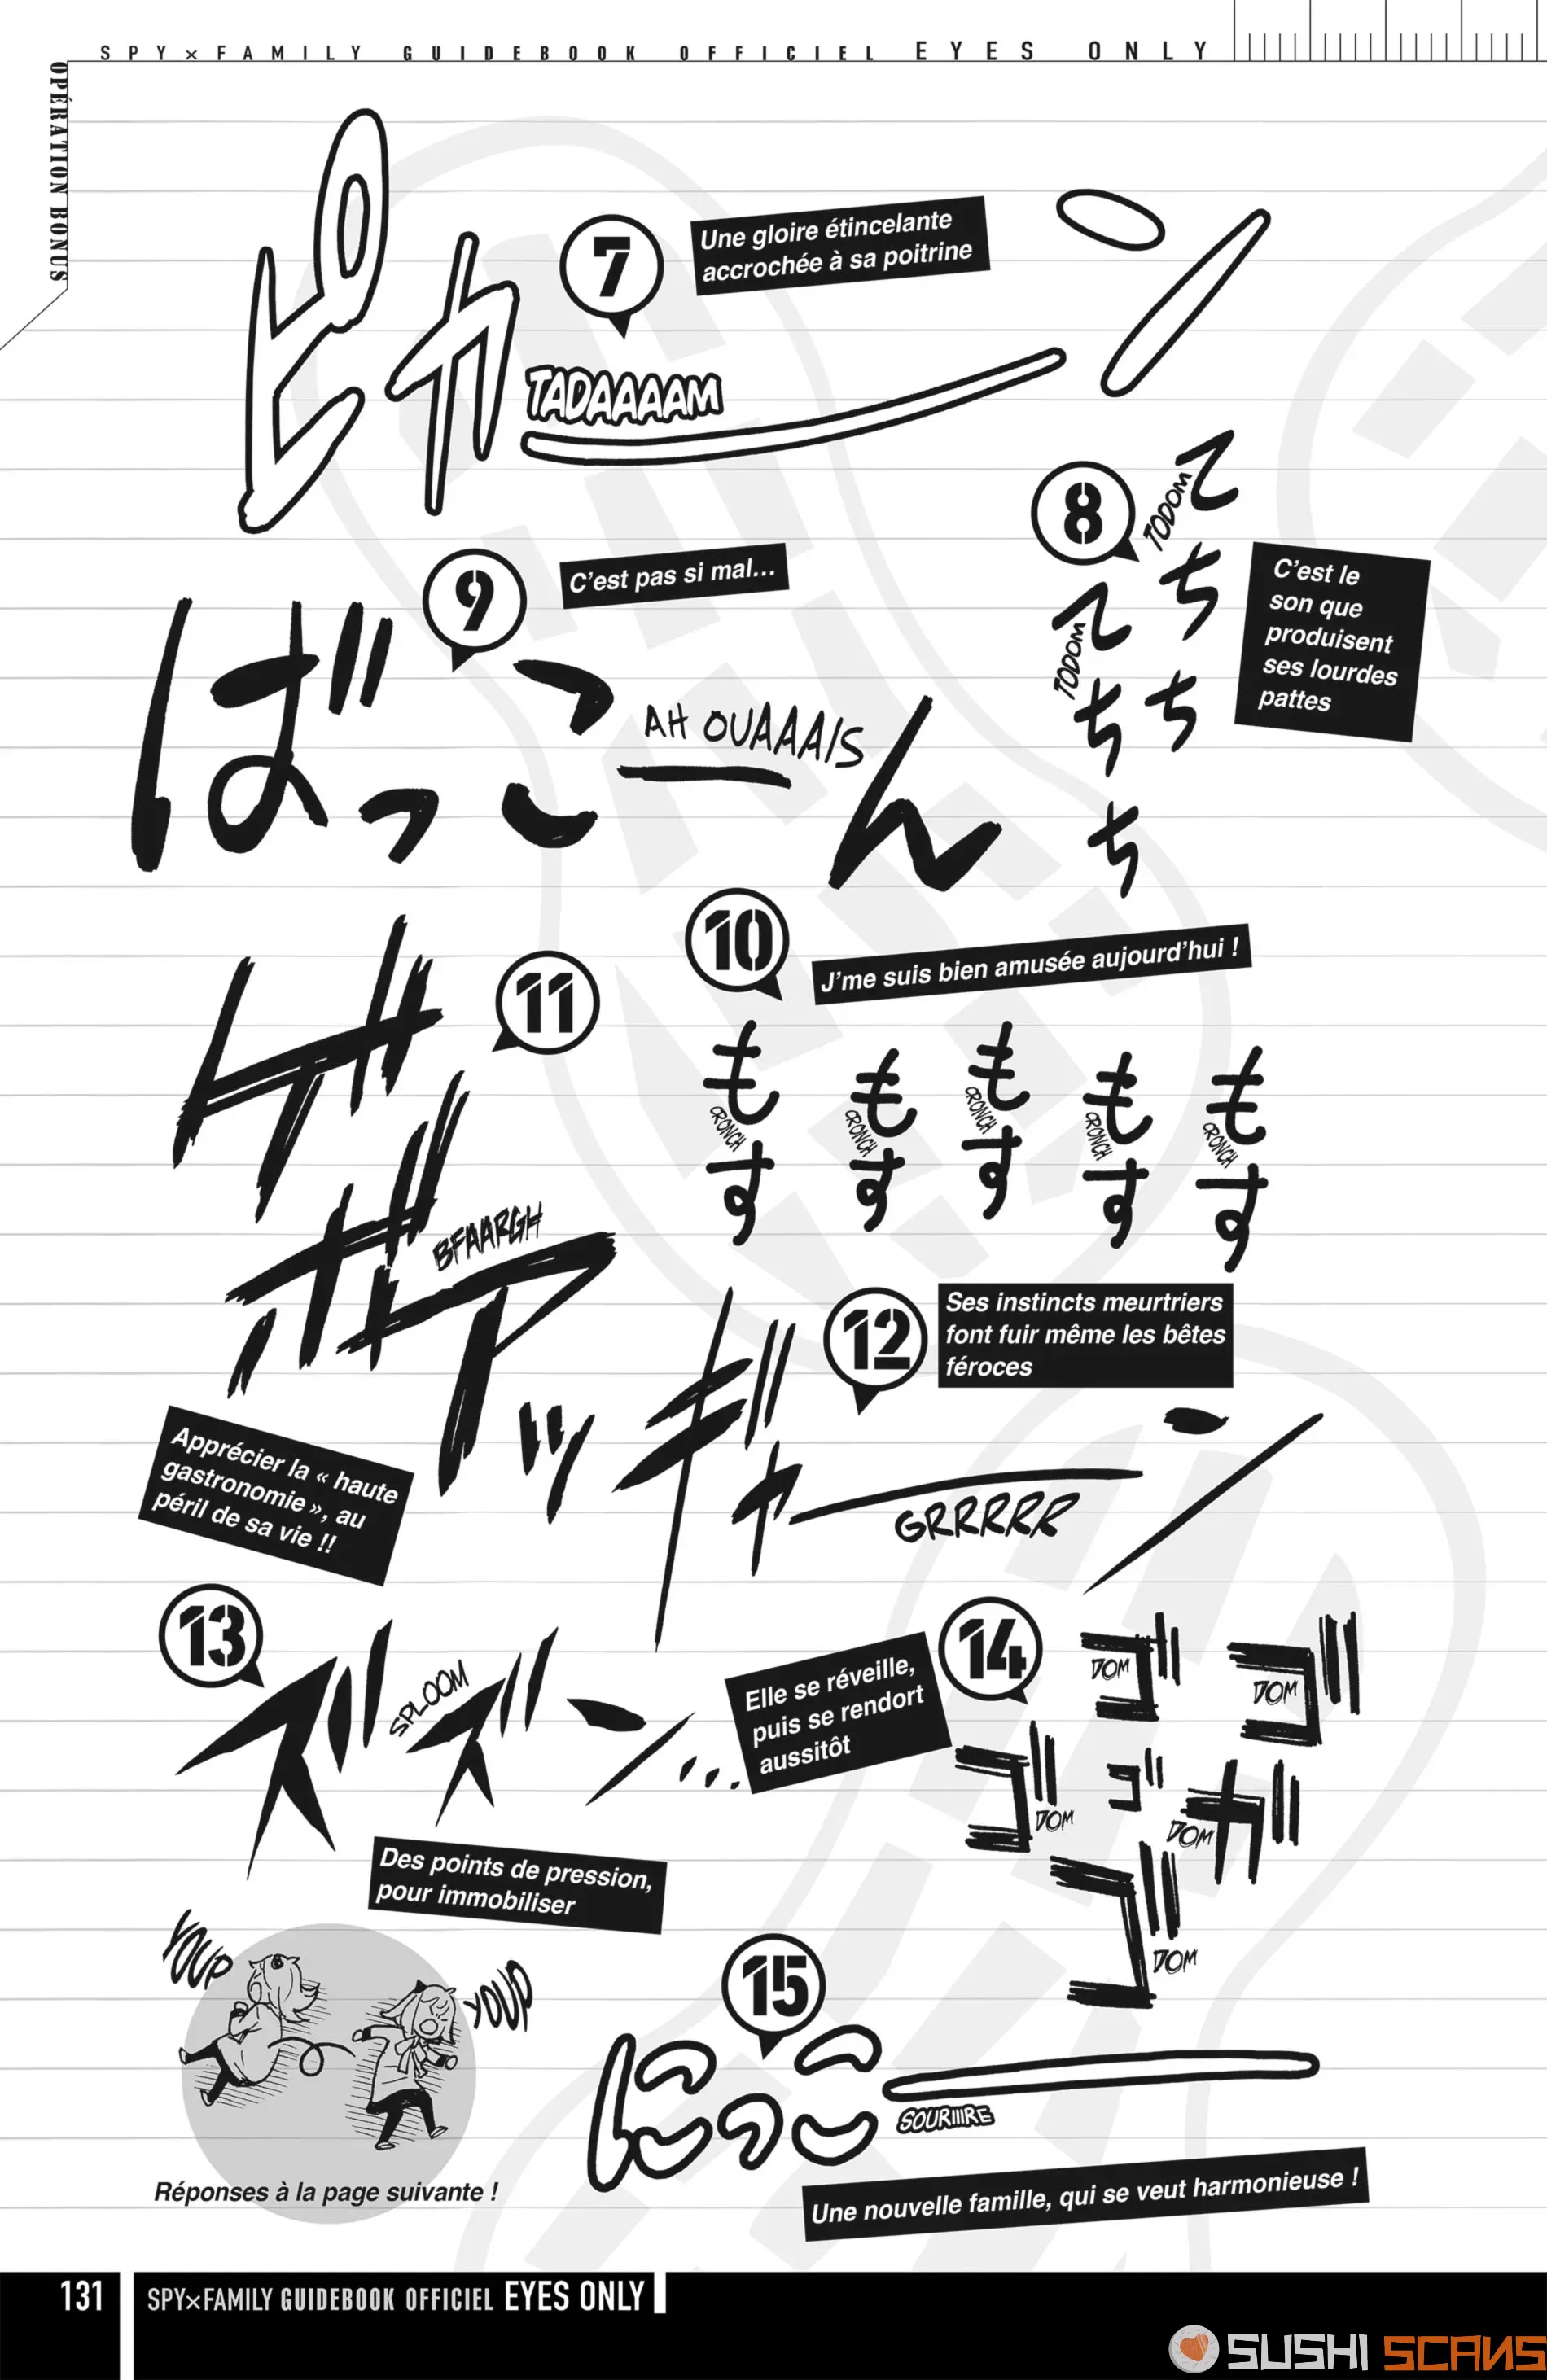 SPY×FAMILY GUIDEBOOK OFFICIEL EYES ONLY
OPÉRATION BONUS
ピカーン
7
Une gloire étincelante
accrochée à sa poitrine
TADAAAAM
8
てちち
TODOM
てちち
TODOM
C'est le
son que
produisent
ses lourdes
pattes
9
C'est pas si mal...
ばっこーん
AH OUAAAIS
10
J'me suis bien amusée aujourd'hui !
もす
CRONCH
もす
CRONCH
もす
CRONCH
もす
CRONCH
もす
CRONCH
11
ゲボアッ
BFAARGH
Apprécier la « haute
gastronomie », au
péril de sa vie !!
12
Ses instincts meurtriers
font fuir même les bêtes
féroces
ギャーン
GRRRRR
13
ズズン...
SPLOOM
Des points de pression,
pour immobiliser
14
Elle se réveille,
puis se rendort
aussitôt
ゴ
DOM
ゴ
DOM
ゴ
DOM
ゴ
ガ
DOM
ゴ
DOM
YOUP
YOUP
Réponses à la page suivante !
15
にっこー
SOURIIIRE
Une nouvelle famille, qui se veut harmonieuse !
131
SPY×FAMILY GUIDEBOOK OFFICIEL EYES ONLY
SUSHI SCANS